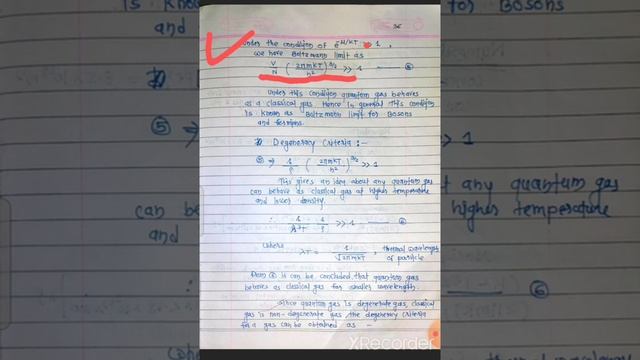 36
Under the condition of e^-μ/KT ≫ 1,
we have Boltzmann limit as
V/N (2πmKT/h²)^3/2 ≫ 1 —— ⑤
Under this condition quantum gas behaves
as a classical gas. Hence in general this condition
is known as Boltzmann limit for Bosons
and fermions.
Degeneracy Criteria :-
⑤ ⇒ 1/ρ (2πmKT/h²)^3/2 ≫ 1
This gives an idea about any quantum gas
can behave as classical gas at higher temperature
and lower density.
∴ 1/λ³T · 1/ρ ≫ 1 —— ⑥
where
λT = h/√2πmKT, thermal wavelength
of particle
From ⑥ it can be concluded that quantum gas
behaves as classical gas for smaller wavelength.
Since quantum gas is degenerate gas, classical
gas is non-degenerate gas, the degeneracy criteria
for a gas can be obtained as -
XRecorder